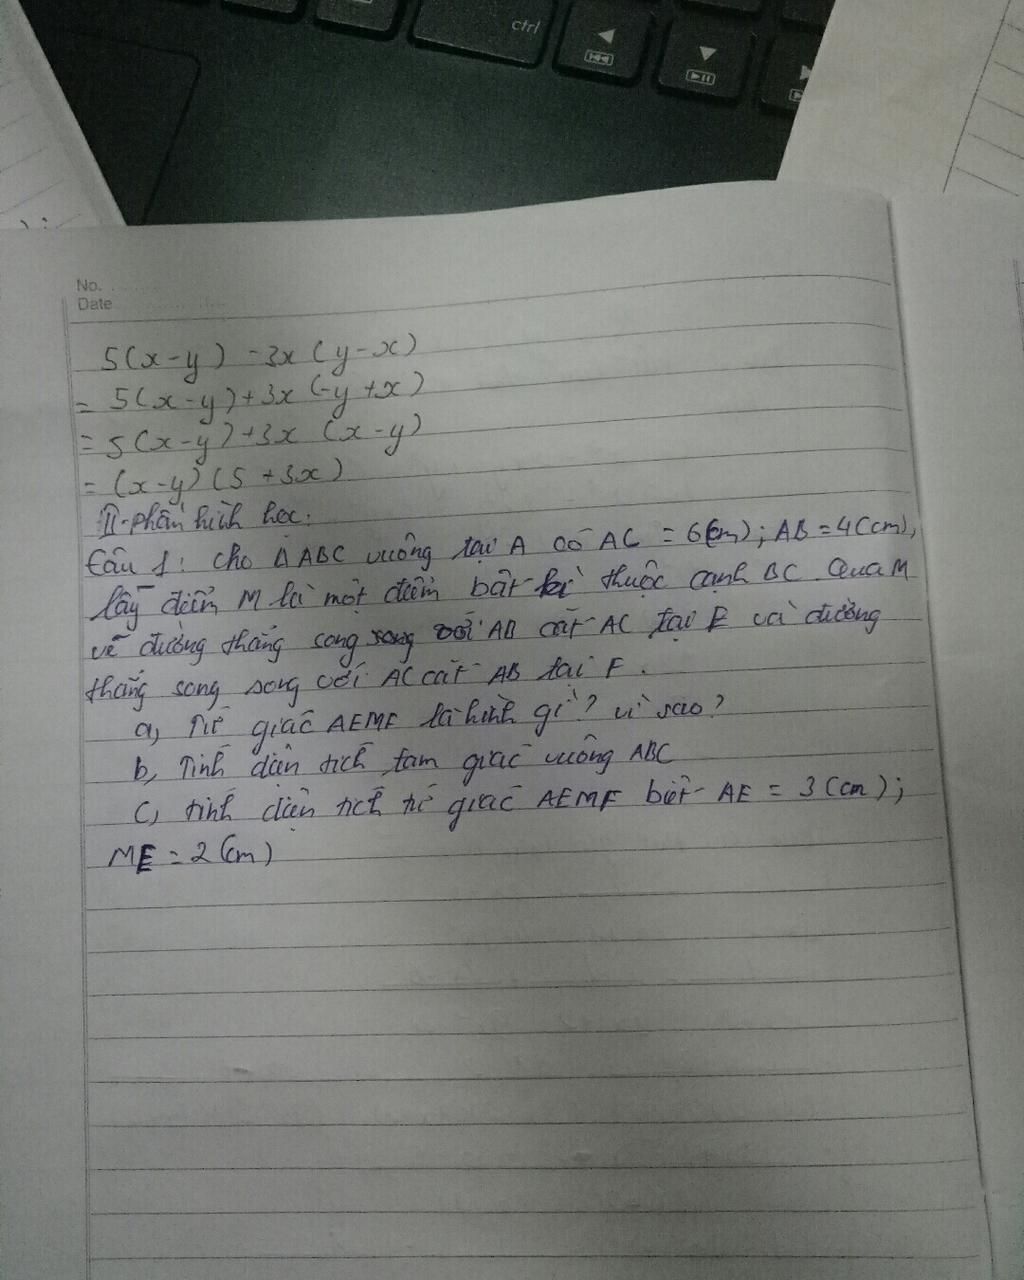 ctrl
No.
Date
5(x-y) -3x (y-x)
= 5(x-y)+3x (-y+x)
= 5(x-y)+3x (x-y)
= (x-y) (5 +3x)
II-phần hình học:
Câu 1: Cho Δ ABC vuông tại A có AC = 6(cm); AB = 4(cm),
lấy điểm M là một điểm bất kì thuộc cạnh BC. Qua M
vẽ đường thẳng song song với AB cắt AC tại E và đường
thẳng song song với AC cắt AB tại F.
a, Tứ giác AEMF là hình gì? vì sao?
b, Tính diện tích tam giác vuông ABC
c, tính diện tích tứ giác AEMF biết AE = 3(cm);
ME = 2(cm)